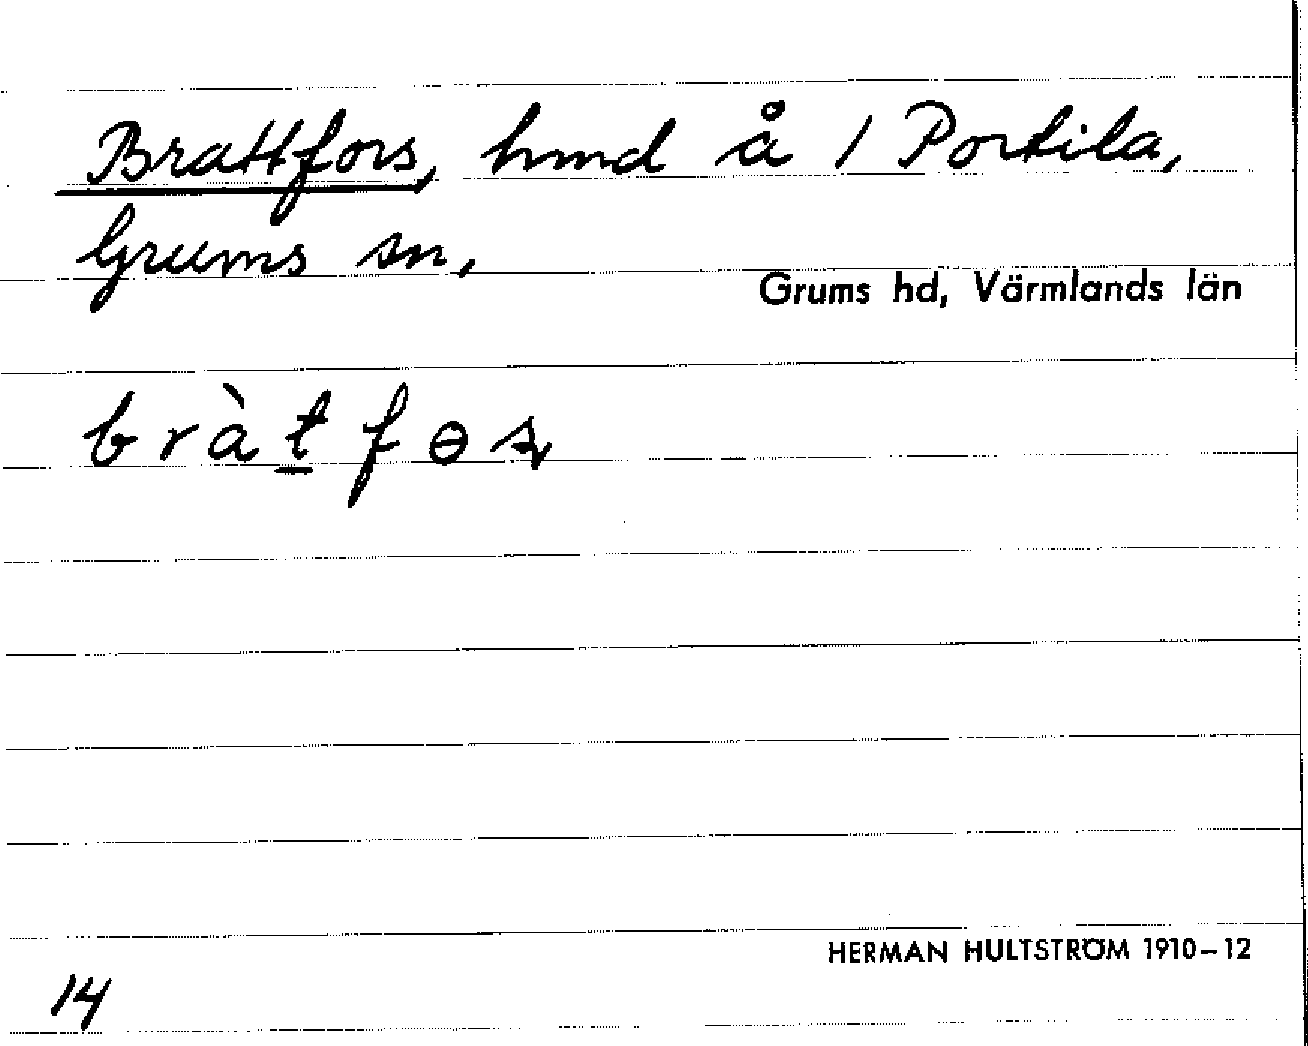 Brattfors, hmd å 1 Portila,
Grums sn,
Grums hd, Värmlands län
bràt̲fɵʂ
HERMAN HULTSTRÖM 1910–12
14